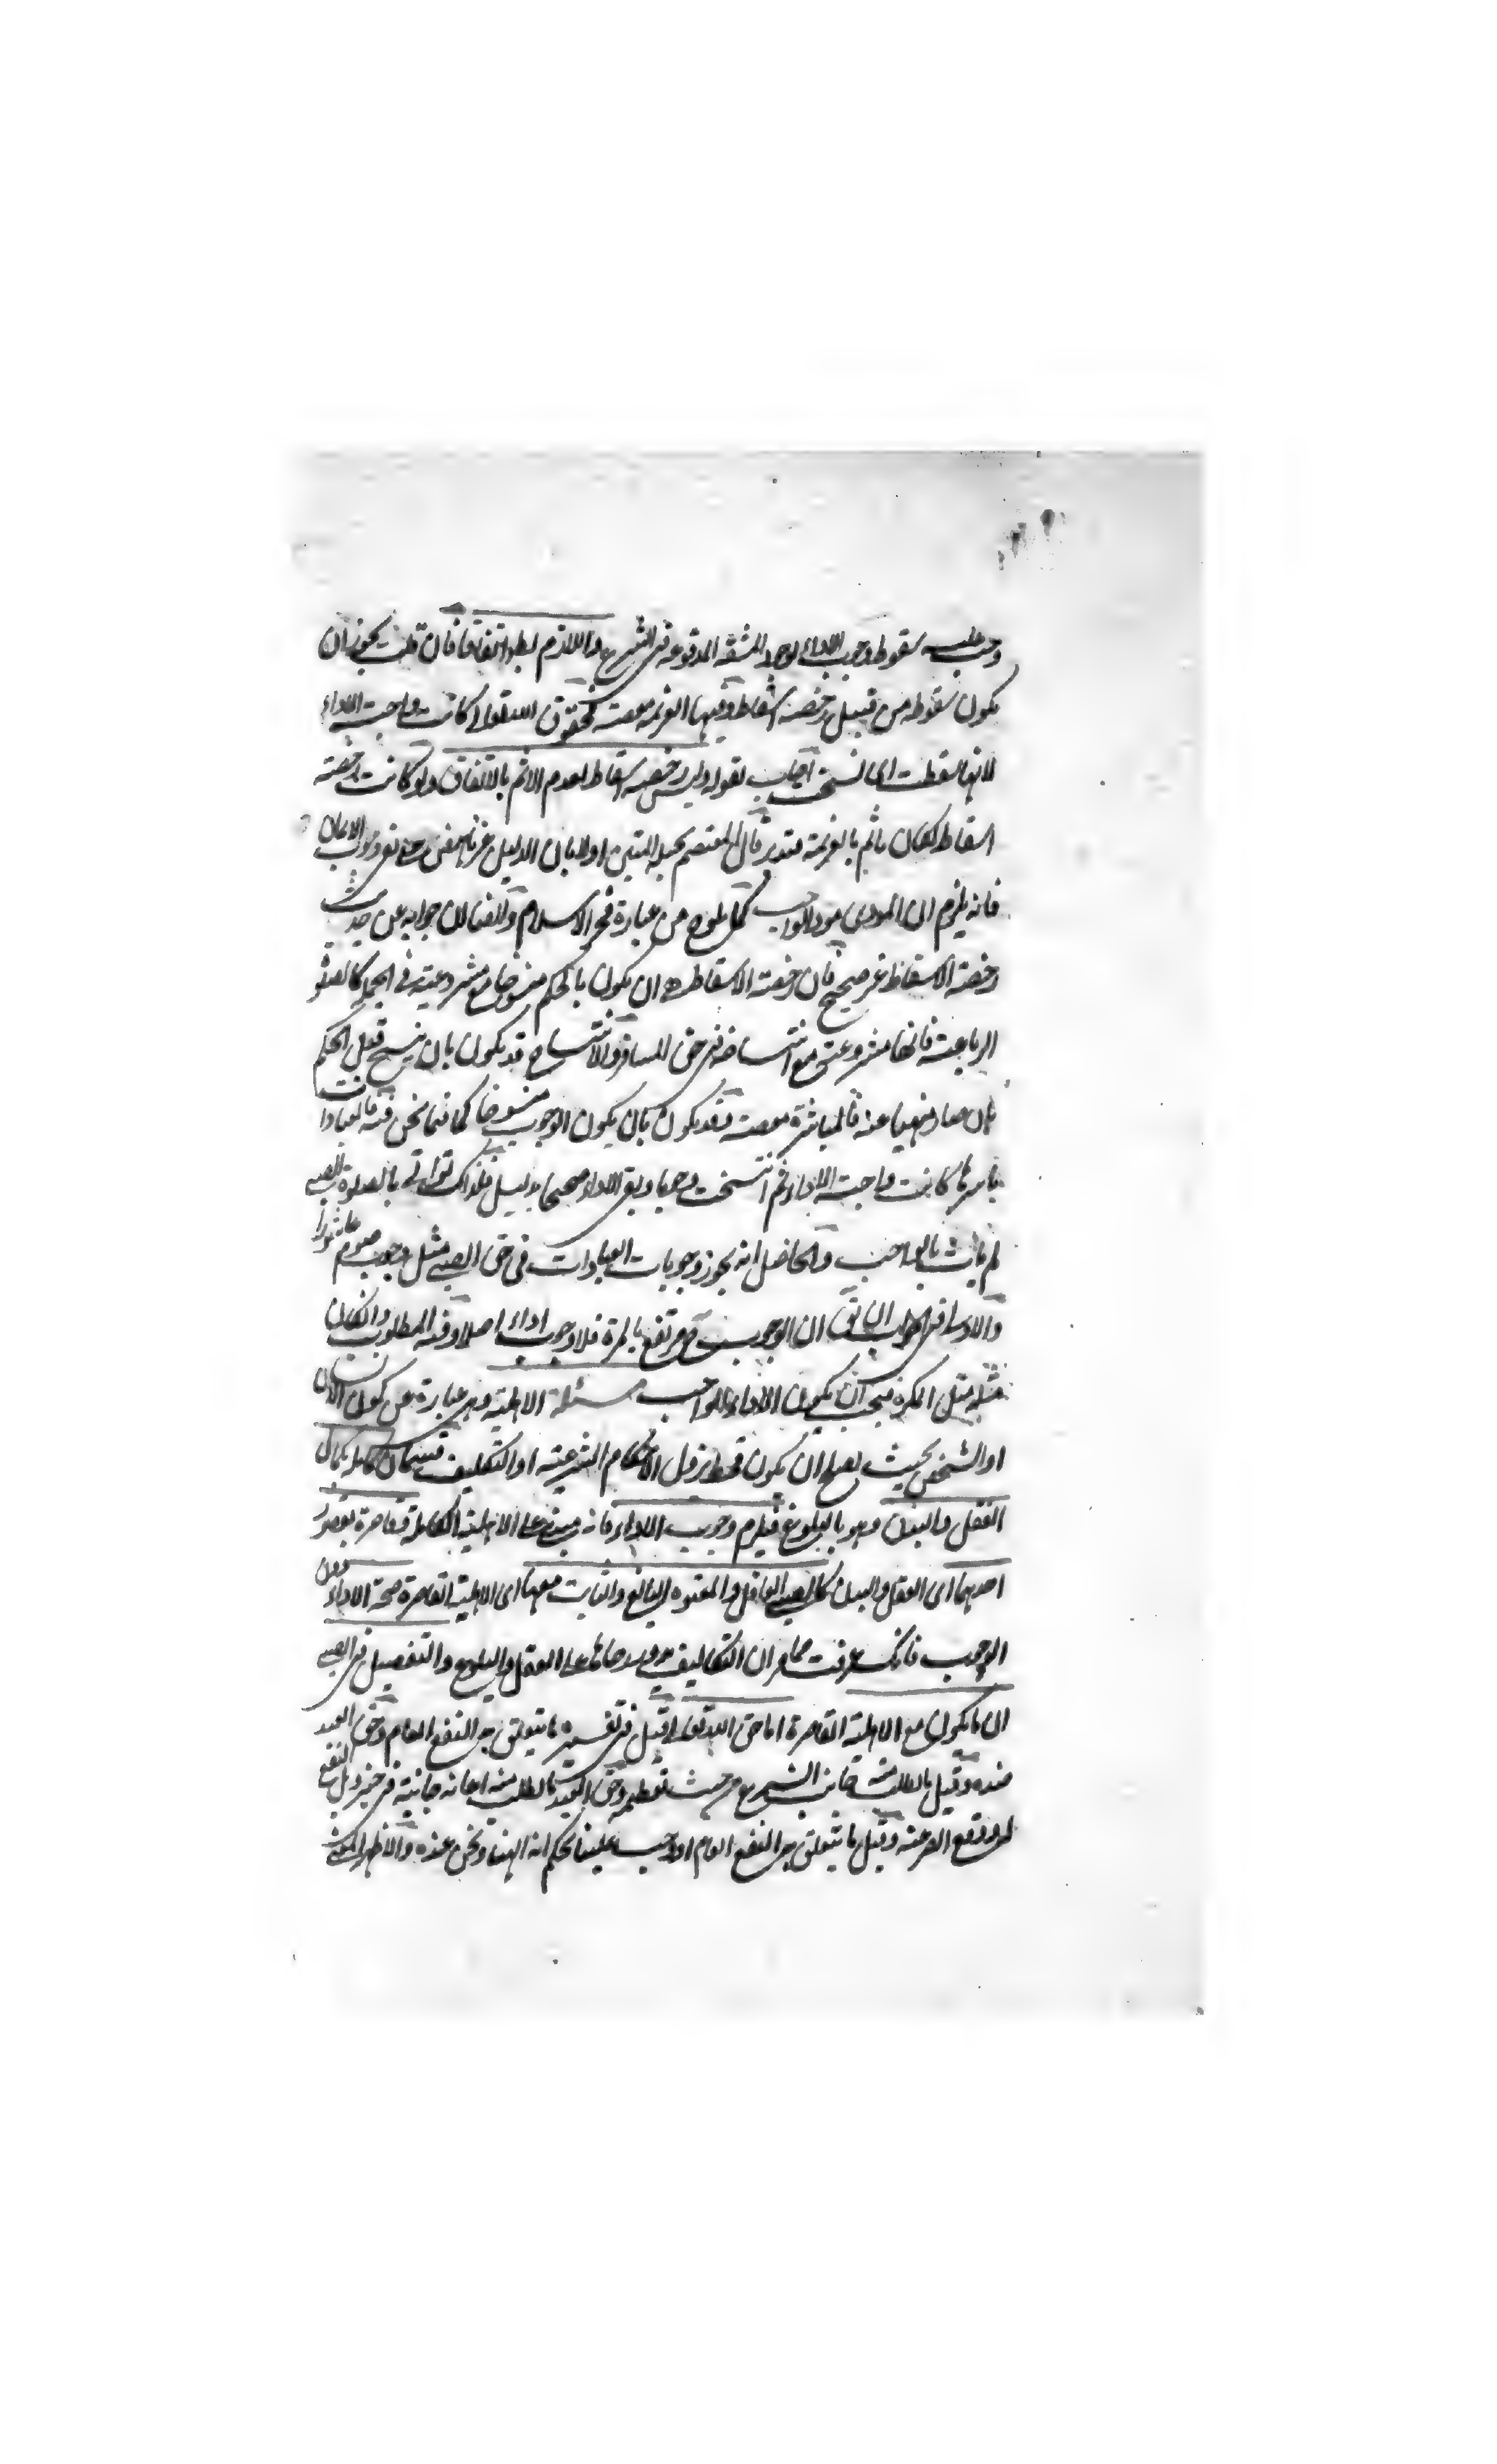 وجب عليه سقوط وجوب الاداء لوجود المشقة المدفوعة في الشرع واللازم باطل اتفاقا فان قلت يجوز ان
يكون سقوطه من قبيل رخصة اسقاط وفيها العزيمة معصية كحقوق الله تعالى كانت واجبة الاداء
لانها سقطت اى نسخت اجاب بقوله وليس رخصة اسقاط لعدم الاثم بالاتفاق ولو كانت رخصة
اسقاط لكان ياثم بالعزيمة فتدبر قال المعتصم بحبله المتين اولا بان الدليل غير ناهض على نفي وجوب الايمان
فانه يلزم ان المودى مود للواجب كما يلوح من عبارة فخر الاسلام وايضا لان جوابه عن حديث
رخصة الاسقاط غير صحيح فان رخصة الاسقاط هي ان يكون بالحكم منسوخا مع مشروعيته في الجملة كالصلوة
الرباعية فانها مشروعة مع انتساخه في حق المسافر والانتساخ قد يكون بان ينسخ فعل الحكم
بان صار منهيا عنه فالمباشرة معصية وقد يكون بان يكون الوجوب منسوخا كما فيما نحن فيه فالعبادات
باسرها كانت واجبة الاداء ثم انتسخت وجوبا وبقى الاداء صحيحا بدليل فلذلك لو اتى بالصلوة الصبي
لم يات بالواجب والحاصل انه يجوز وجوبات العبادات في حق الصبي مثل وجوب صوم عاشورا
والاولى في الجواب ان يق ان الوجوب مرتفع بالمرة فلا وجوب اداء اصلا وفيه المطلوب وان كان
مثله مثل المكره فيجب ان يكون الاداء للواجب مسئلة الاهلية وهى عبارة عن كون الانسان
او الشخص بحيث يصلح ان يكون محط نزول الاحكام الشرعية او التكليف قسمان كاملة بكمال
العقل والبدن وهو بالبلوغ فيلزم وجوب الاداء فانه مبتنى على الاهلية الكاملة وقاصرة بقصور
احدهما اى العقل والبدن كالصبى العاقل والمعتوه البالغ والثابت معها اى الاهلية القاصرة صحة الاداء دون
الوجوب فانك عرفت مما مر ان التكاليف مدارها على العقل والبلوغ والتفصيل في الصبي
ان ما يكون مع الاهلية القاصرة اما حق الله تعالى قيل في تفسيره ما يتعلق به النفع العام وحق العبد
ضده وقيل ما لطلب منه جانب الشرع من حيث تعظيمه وحق العبد ما لطلب منه اعانة جانبه في خير وبل النفع
له ودفع الضر عنه وقيل ما يتعلق به النفع العام اوجب علينا بحكم انه الهنا ونحن عبده والاظهر